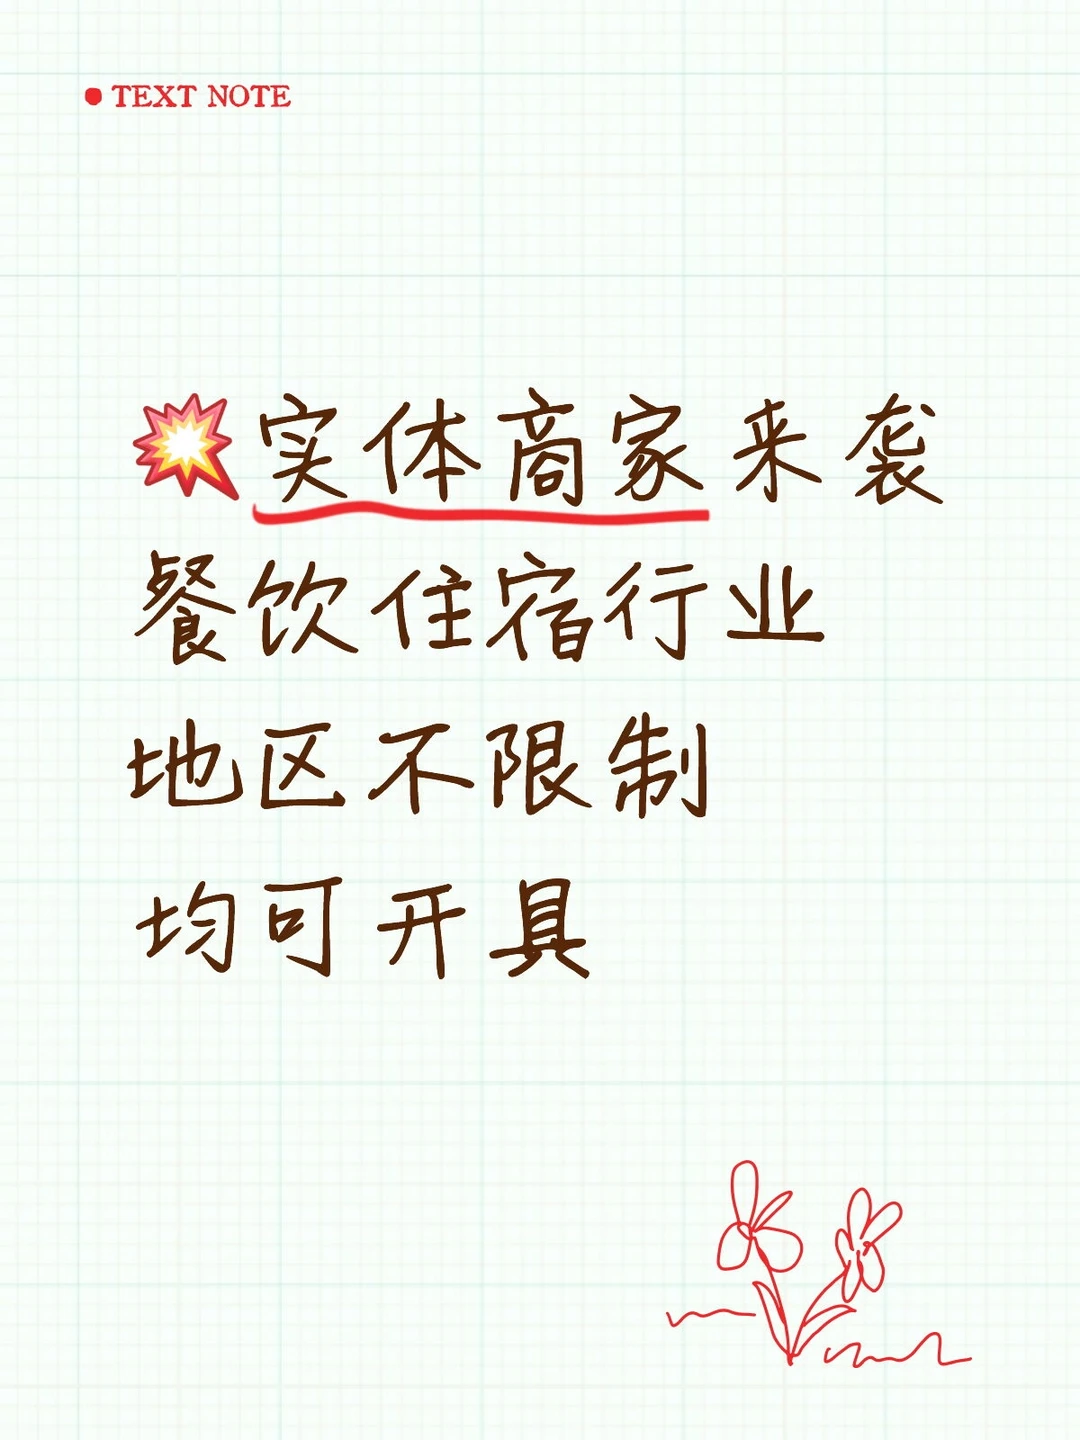 TEXT NOTE
💥实体商家来袭
餐饮住宿行业
地区不限制
均可开具